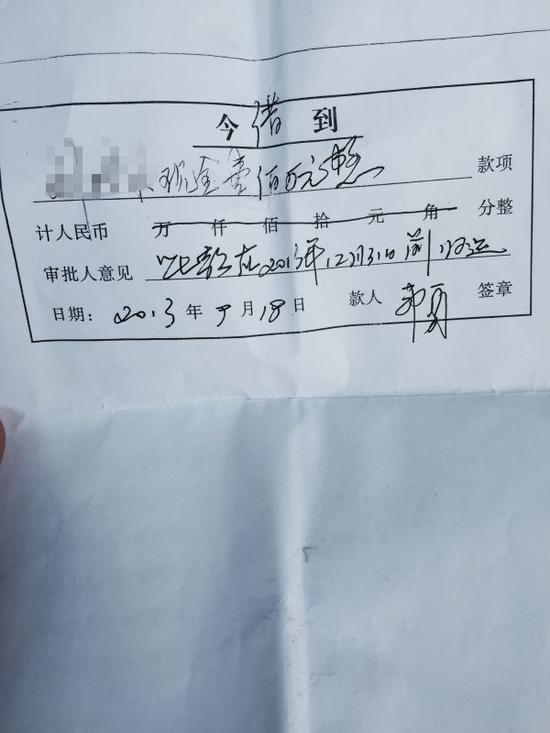 今借到
现金壹佰万元整 款项
计人民币 万 仟 佰 拾 元 角 分整
审批人意见 此款在2013年12月31日前归还
日期: 2013年9月18日 款人 签章